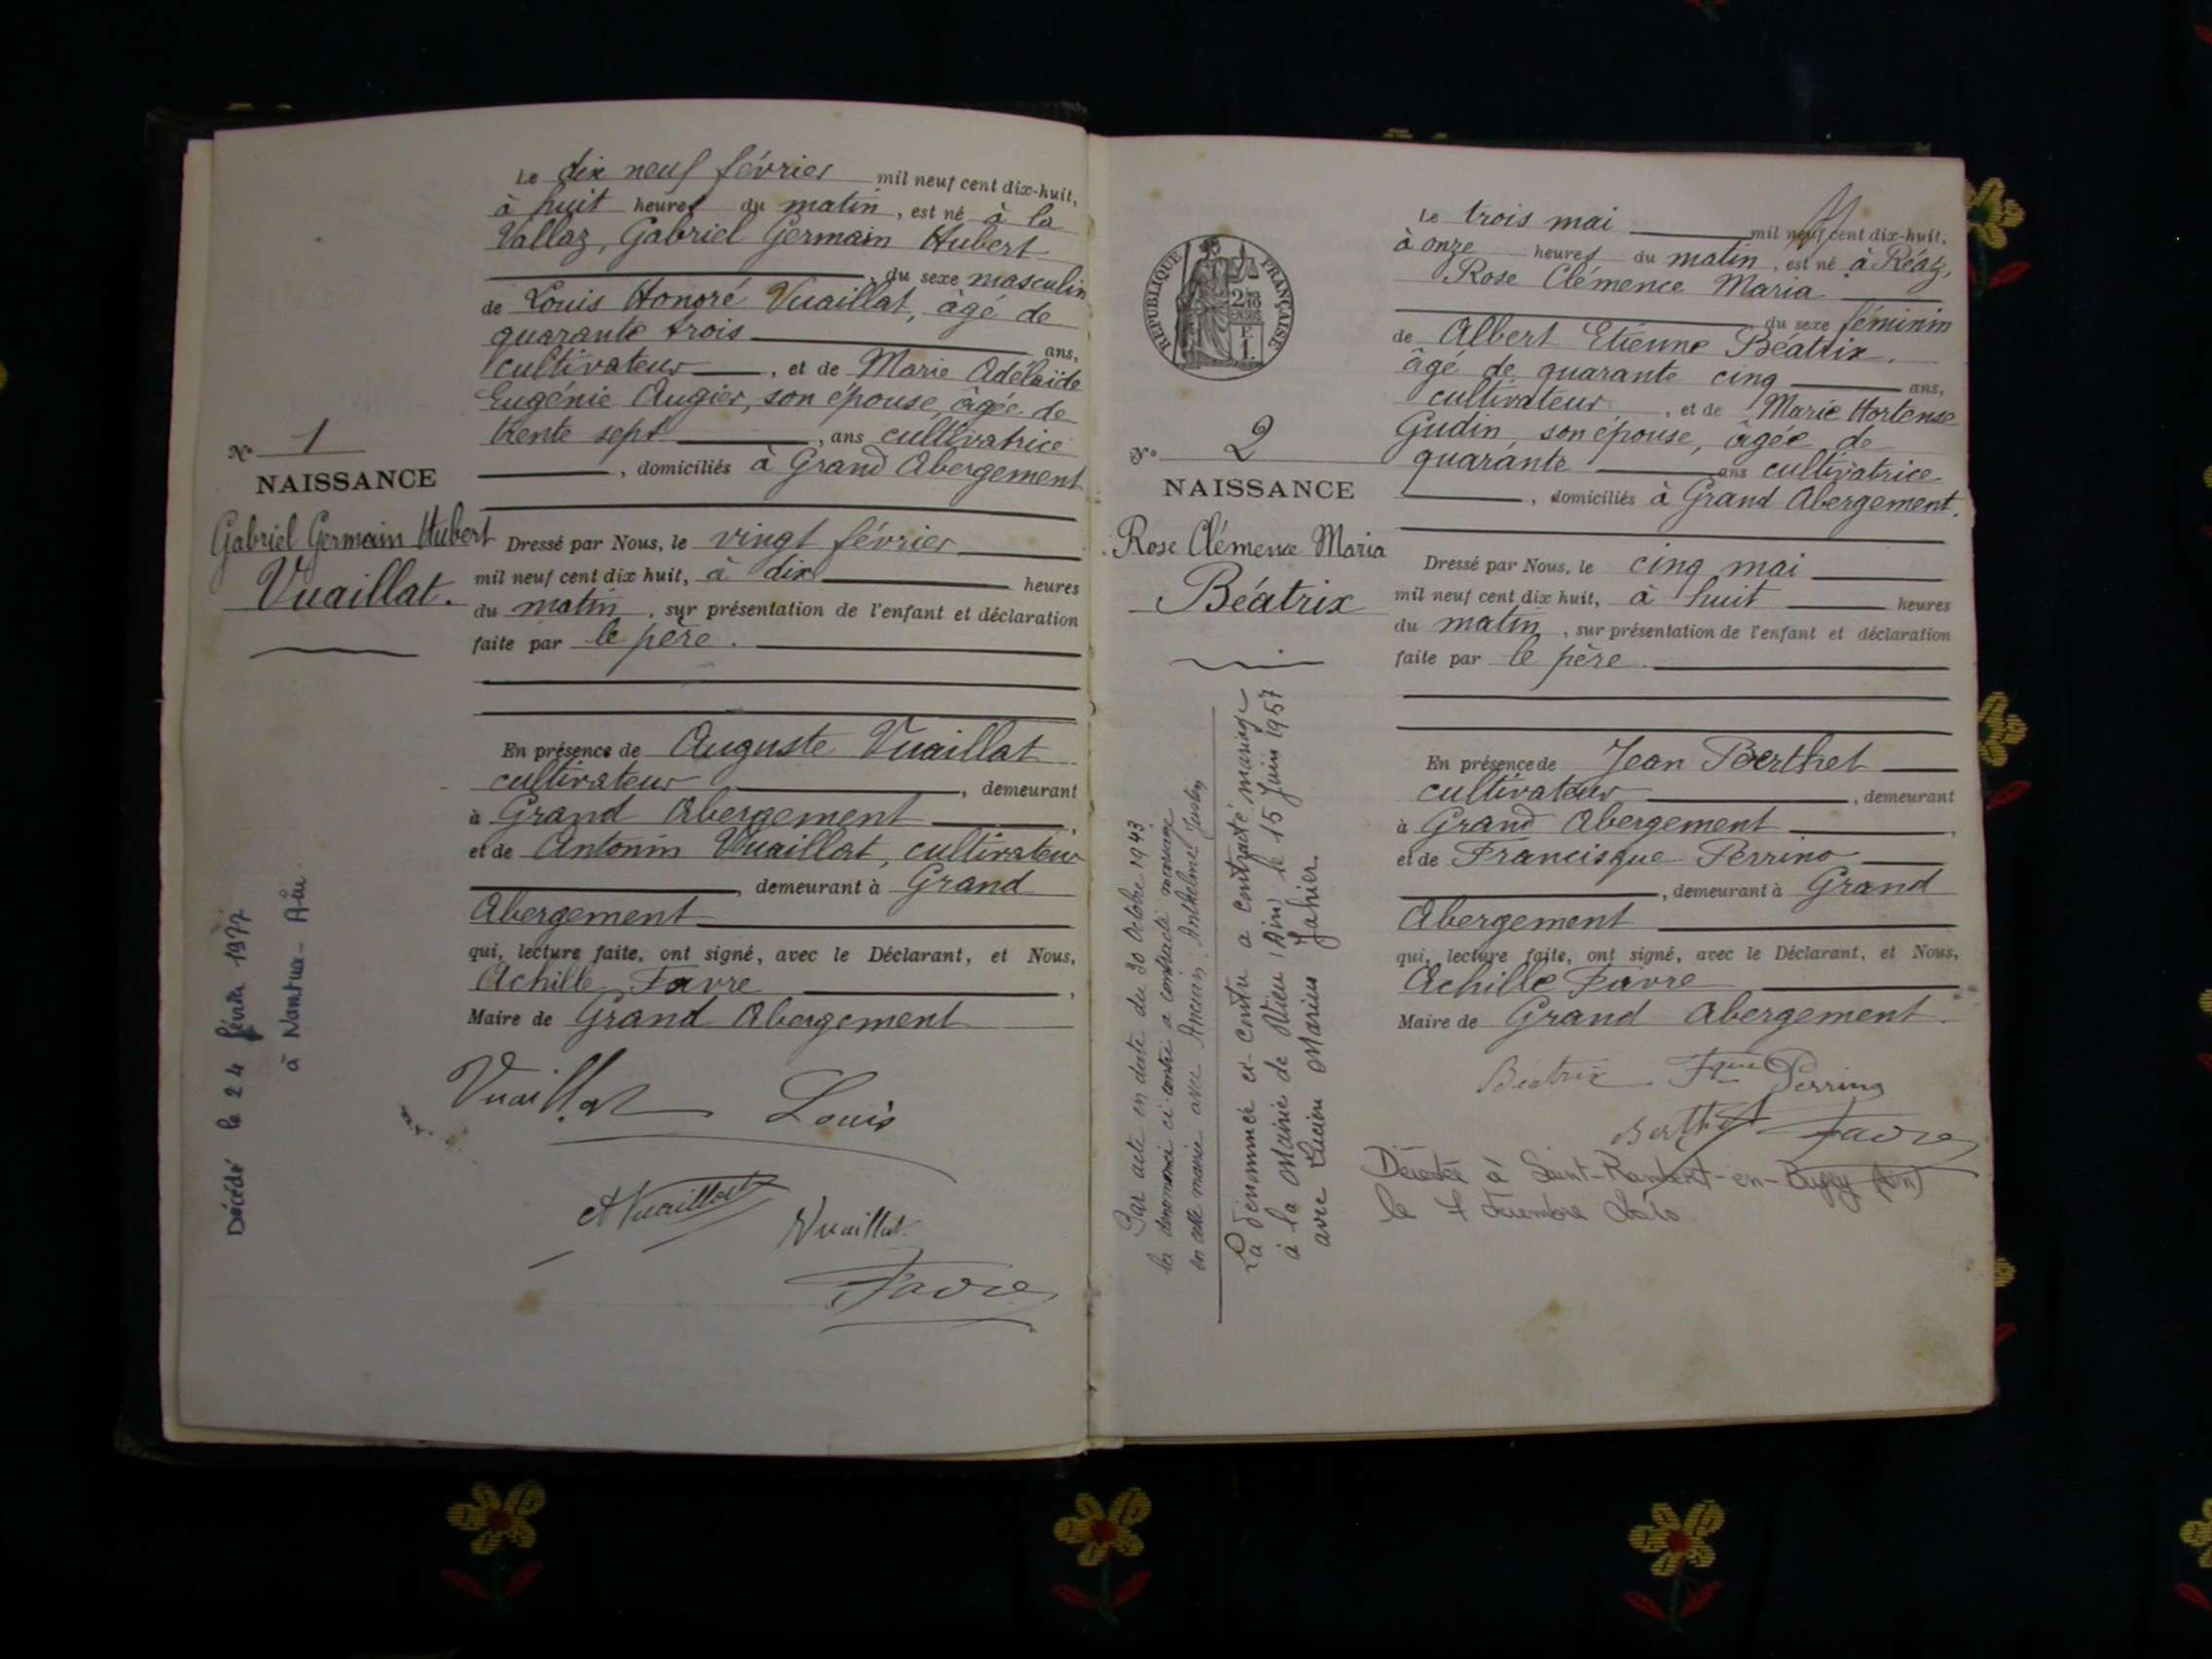 Le dix neuf février mil neuf cent dix-huit,
à huit heures du matin, est né à la
Vallaz, Gabriel Germain Hubert
, du sexe masculin
de Louis Honoré Vuaillat, âgé de
quarante trois ans,
cultivateur, et de Marie Adélaïde
Eugénie Augier, son épouse, âgée de
trente sept, ans cultivatrice
, domiciliés à Grand Abergement
N° 1
NAISSANCE
Gabriel Germain Hubert
Vuaillat.
Dressé par Nous, le vingt février
mil neuf cent dix huit, à dix heures
du matin, sur présentation de l'enfant et déclaration
faite par le père.
En présence de Auguste Vuaillat
cultivateur, demeurant
à Grand Abergement,
et de Antonin Vuaillat, cultivateur
, demeurant à Grand
Abergement
qui, lecture faite, ont signé, avec le Déclarant, et Nous,
Achille Favre,
Maire de Grand Abergement
Vuaillat Louis
A Vuaillat
Vuaillat
Favre
Décédé le 24 février 1977
à Nantua - Ain
Le trois mai mil neuf cent dix-huit,
à onze heures du matin, est né à Réaz,
Rose Clémence Maria
du sexe féminin
de Albert Etienne Béatrix,
âgé de quarante cinq ans,
cultivateur, et de Marie Hortense
Gudin, son épouse, âgée de
quarante ans cultivatrice
, domiciliés à Grand Abergement.
RÉPUBLIQUE FRANÇAISE
N° 2
NAISSANCE
Rose Clémence Maria
Béatrix
Dressé par Nous, le cinq mai
mil neuf cent dix huit, à huit heures
du matin, sur présentation de l'enfant et déclaration
faite par le père
En présence de Jean Berthet
cultivateur, demeurant
à Grand Abergement,
et de Francisque Perrino
, demeurant à Grand
Abergement
qui, lecture faite, ont signé, avec le Déclarant, et Nous,
Achille Favre
Maire de Grand Abergement.
Béatrix Fque Perrino
Berthet Favre
Décédée à Saint-Rambert-en-Bugey (Ain)
le décembre
Par acte en date du 30 Octobre 1943
la dénommée ci-contre a contracté mariage
en cette mairie avec Anthelme Justin
La dénommée ci-contre a contracté mariage
à la Mairie de (Ain) le 15 Juin 1957
avec Lucien Marius Jahier